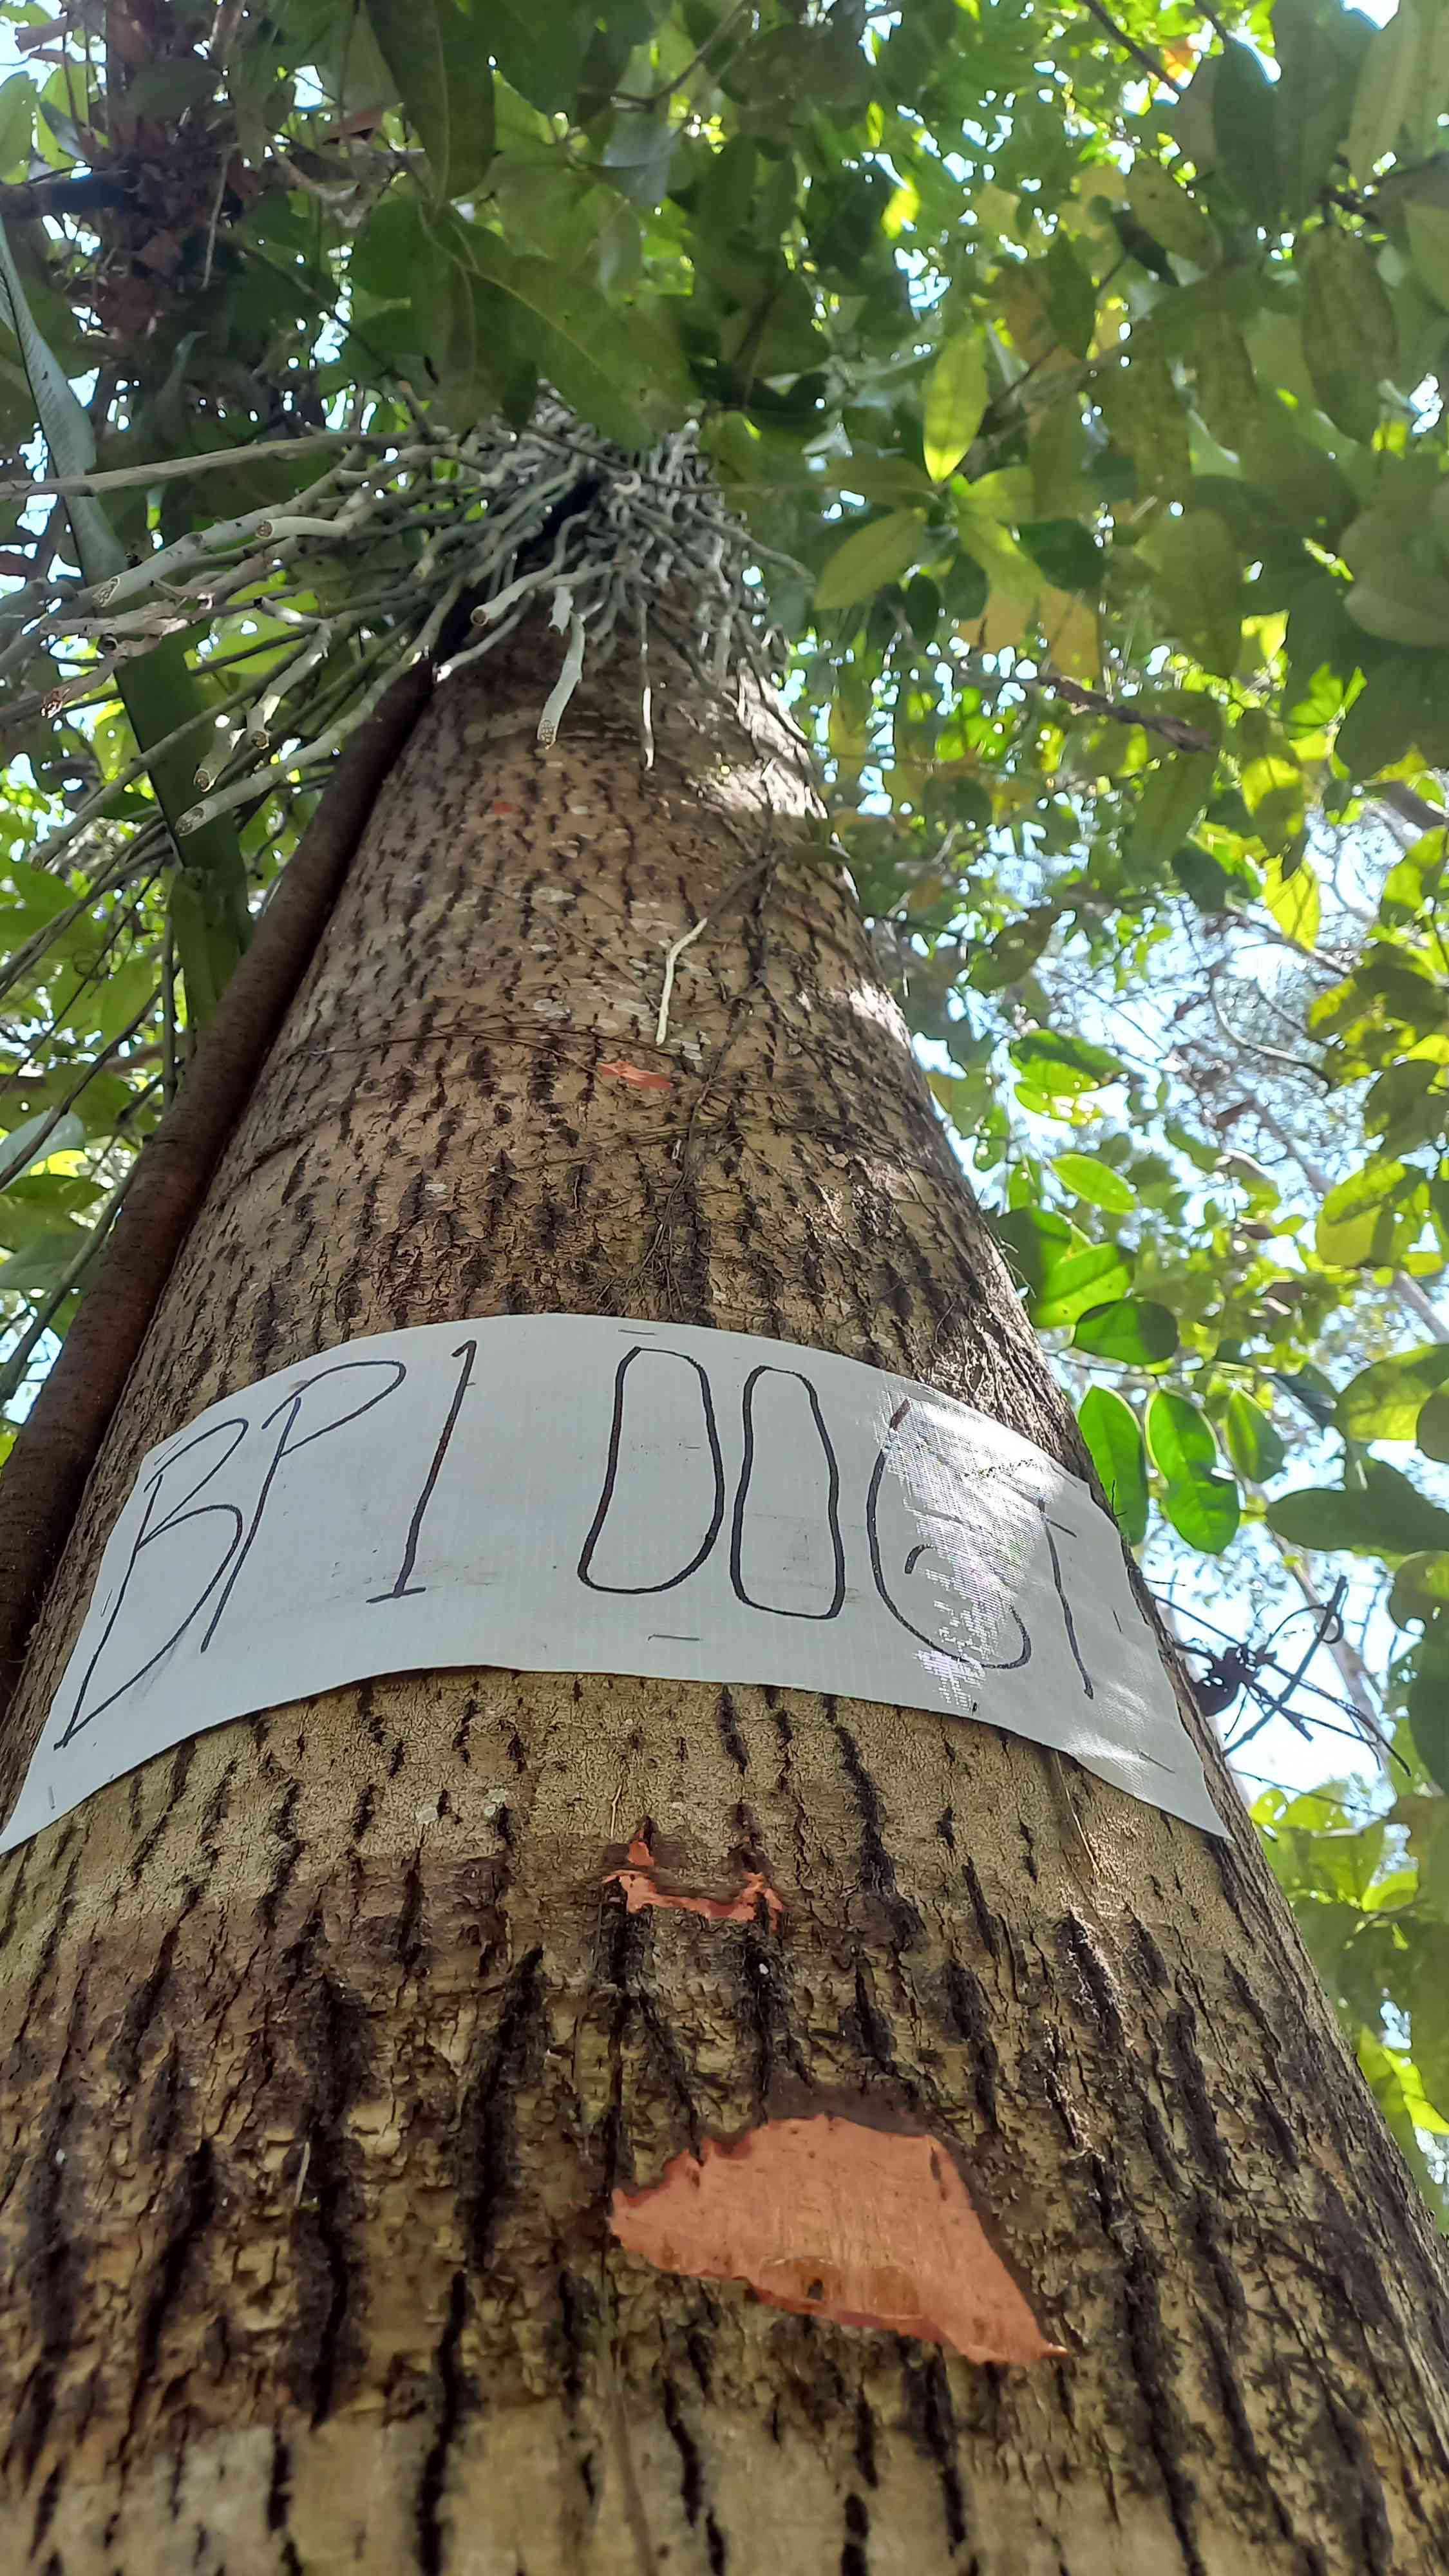 BP1 0067